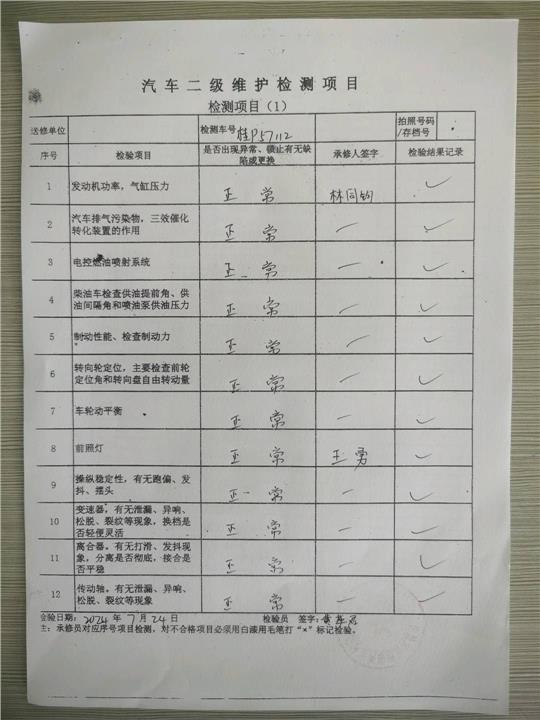 汽车二级维护检测项目
检测项目（1）
送修单位 检测车号 桂P57112 拍照号码/存档号
序号 检验项目 是否出现异常、锁止有无缺陷或更换 承修人签字 检验结果记录
1 发动机功率，气缸压力 正常 林同钧 ✓
2 汽车排气污染物，三效催化转化装置的作用 正常 — ✓
3 电控燃油喷射系统 正常 — ✓
4 柴油车检查供油提前角、供油间隔角和喷油泵供油压力 正常 — ✓
5 制动性能、检查制动力 正常 — ✓
6 转向轮定位，主要检查前轮定位角和转向盘自由转动量 正常 — ✓
7 车轮动平衡 正常 — ✓
8 前照灯 正常 王勇 ✓
9 操纵稳定性，有无跑偏、发抖、摆头 正常 — ✓
10 变速器。有无泄漏、异响、松脱、裂纹等现象，换档是否轻便灵活 正常 — ✓
11 离合器。有无打滑、发抖现象，分离是否彻底，接合是否平稳 正常 — ✓
12 传动轴。有无泄漏、异响、松脱、裂纹等现象 正常 — ✓
检验日期：2024年7月24日 检验员 签字：
主：承修员对应序号项目检测，对不合格项目必须用白漆用毛笔打“×”标记检验。